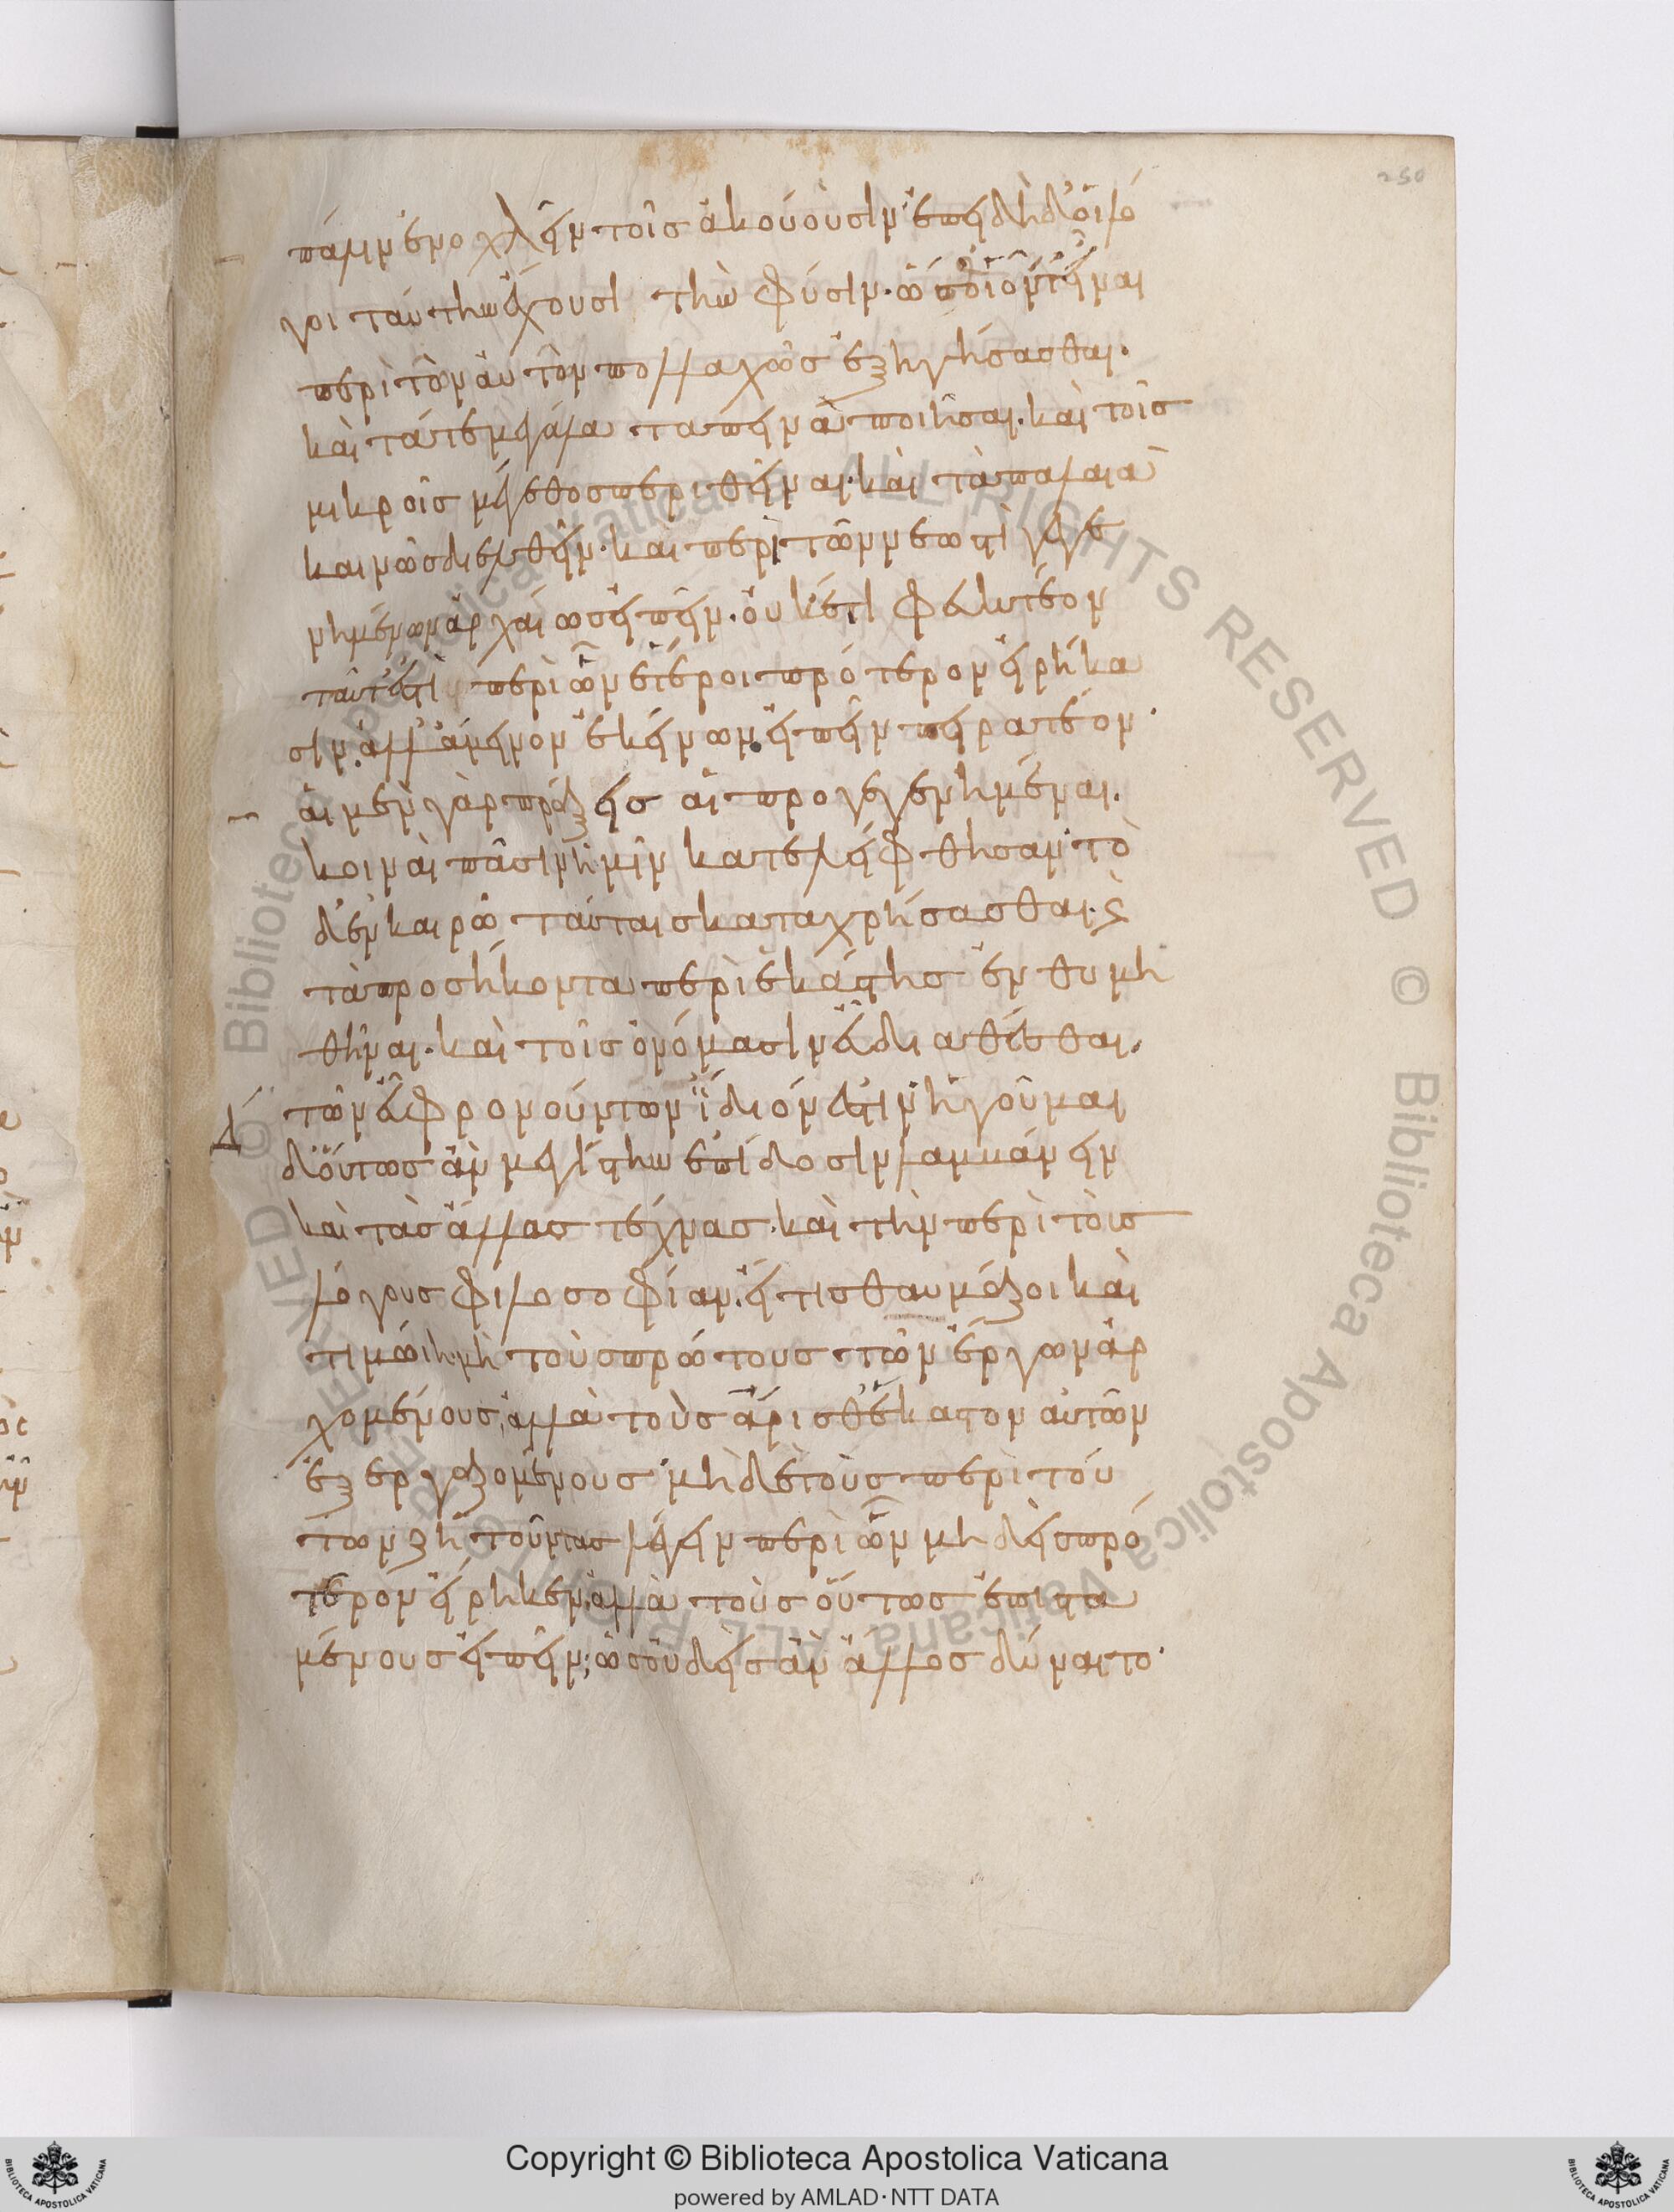 250
πάλιν ἐνοχλεῖν τοῖς ἀκούουσιν· ἐπειδὴ δ' οἱ λό
γοι ταύτην ἔχουσι τὴν φύσιν. ὥσθ' οἷόντ' εἶναι
περὶ τῶν αὐτῶν πολλαχῶς ἐξηγήσασθαι.
καὶ τά τε μεγάλα ταπεινὰ ποιῆσαι. καὶ τοῖς
μικροῖς μέγεθος περιθεῖναι. καὶ τὰ παλαιὰ
καινῶς διελθεῖν. καὶ περὶ τῶν νεωστὶ γεγε
νημένων ἀρχαίως εἰπεῖν. οὐκέτι φευκτέον
ταῦτ' ἐστὶ περὶ ὧν ἕτεροι πρότερον εἰρήκα
σιν. ἀλλ' ἄμεινον ἐκείνων εἰπεῖν πειρατέον·
αἱ μὲν γὰρ πράξεις αἱ προγεγενημέναι.
κοιναὶ πᾶσιν ἡμῖν κατελείφθησαν· τὸ
δ' ἐν καιρῷ ταύταις καταχρήσασθαι. ϛ
τὰ προσήκοντα περὶ ἑκάστης ἐνθυμη
θῆναι. καὶ τοῖς ὀνόμασιν εὖ διαθέσθαι.
τῶν εὖ φρονούντων ἴδιόν ἐστιν ἡγοῦμαι
δ' οὕτως ἂν μεγίστην ἐπίδοσιν λαμβάνειν
καὶ τὰς ἄλλας τέχνας. καὶ τὴν περὶ τοὺς
λόγους φιλοσοφίαν. εἴ τις θαυμάζοι καὶ
τιμῴη μὴ τοὺς πρώτους τῶν ἔργων ἀρ
χομένους, ἀλλὰ τοὺς ἄρισθ' ἕκαστον αὐτῶν
ἐξεργαζομένους· μὴ δὲ τοὺς περὶ τού
των ζητοῦντας λέγειν περὶ ὧν μηδεὶς πρό
τερον εἴρηκεν, ἀλλὰ τοὺς οὕτως ἐπιστα
μένους εἰπεῖν, ὡς οὐδεὶς ἂν ἄλλος δύναιτο·
Copyright © Biblioteca Apostolica Vaticana
powered by AMLAD·NTT DATA